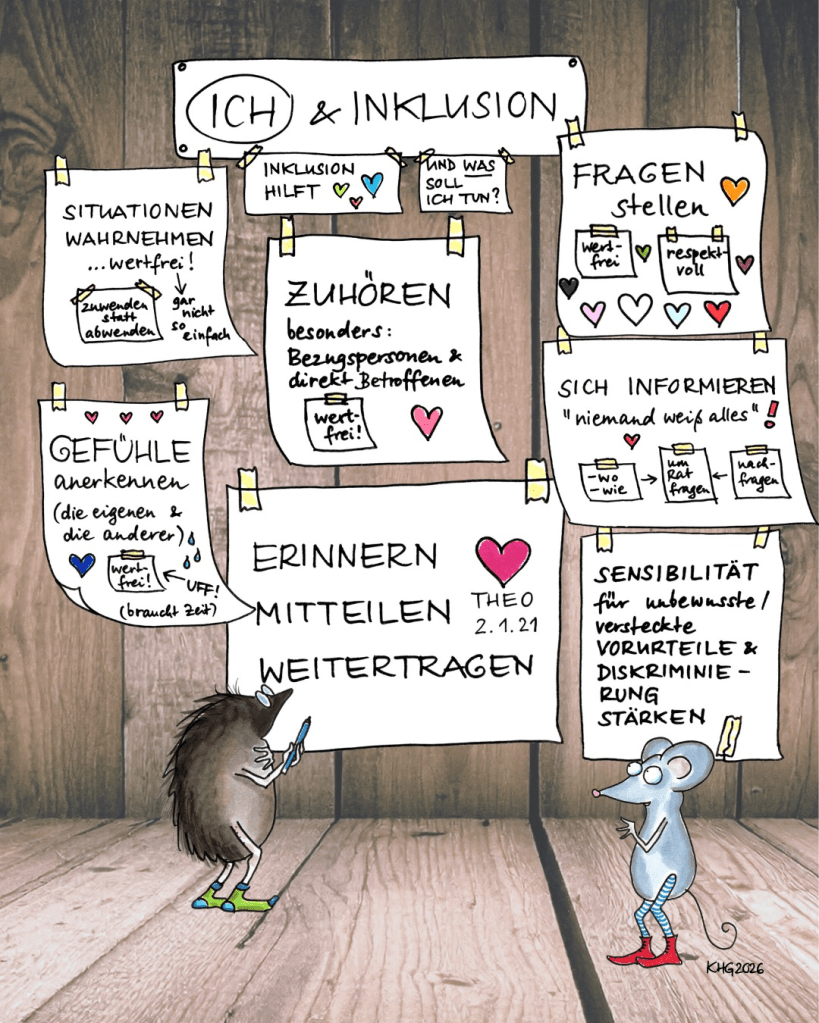 ICH & INKLUSION
INKLUSION
HILFT
UND WAS
SOLL
ICH TUN?
SITUATIONEN
WAHRNEHMEN
...wertfrei!
zuwenden
statt
abwenden
gar
nicht
so
einfach
ZUHÖREN
besonders:
Bezugspersonen &
direkt Betroffenen
wert-
frei!
FRAGEN
stellen
wert-
frei
respekt-
voll
SICH INFORMIEREN
"niemand weiß alles"!
-wo
-wie
um
Rat
fragen
nach-
fragen
GEFÜHLE
anerkennen
(die eigenen &
die anderer)
wert-
frei!
UFF!
(braucht Zeit)
ERINNERN
MITTEILEN
WEITERTRAGEN
THEO
2.1.21
SENSIBILITÄT
für unbewusste/
versteckte
VORURTEILE &
DISKRIMINIE-
RUNG
STÄRKEN
KHG2026